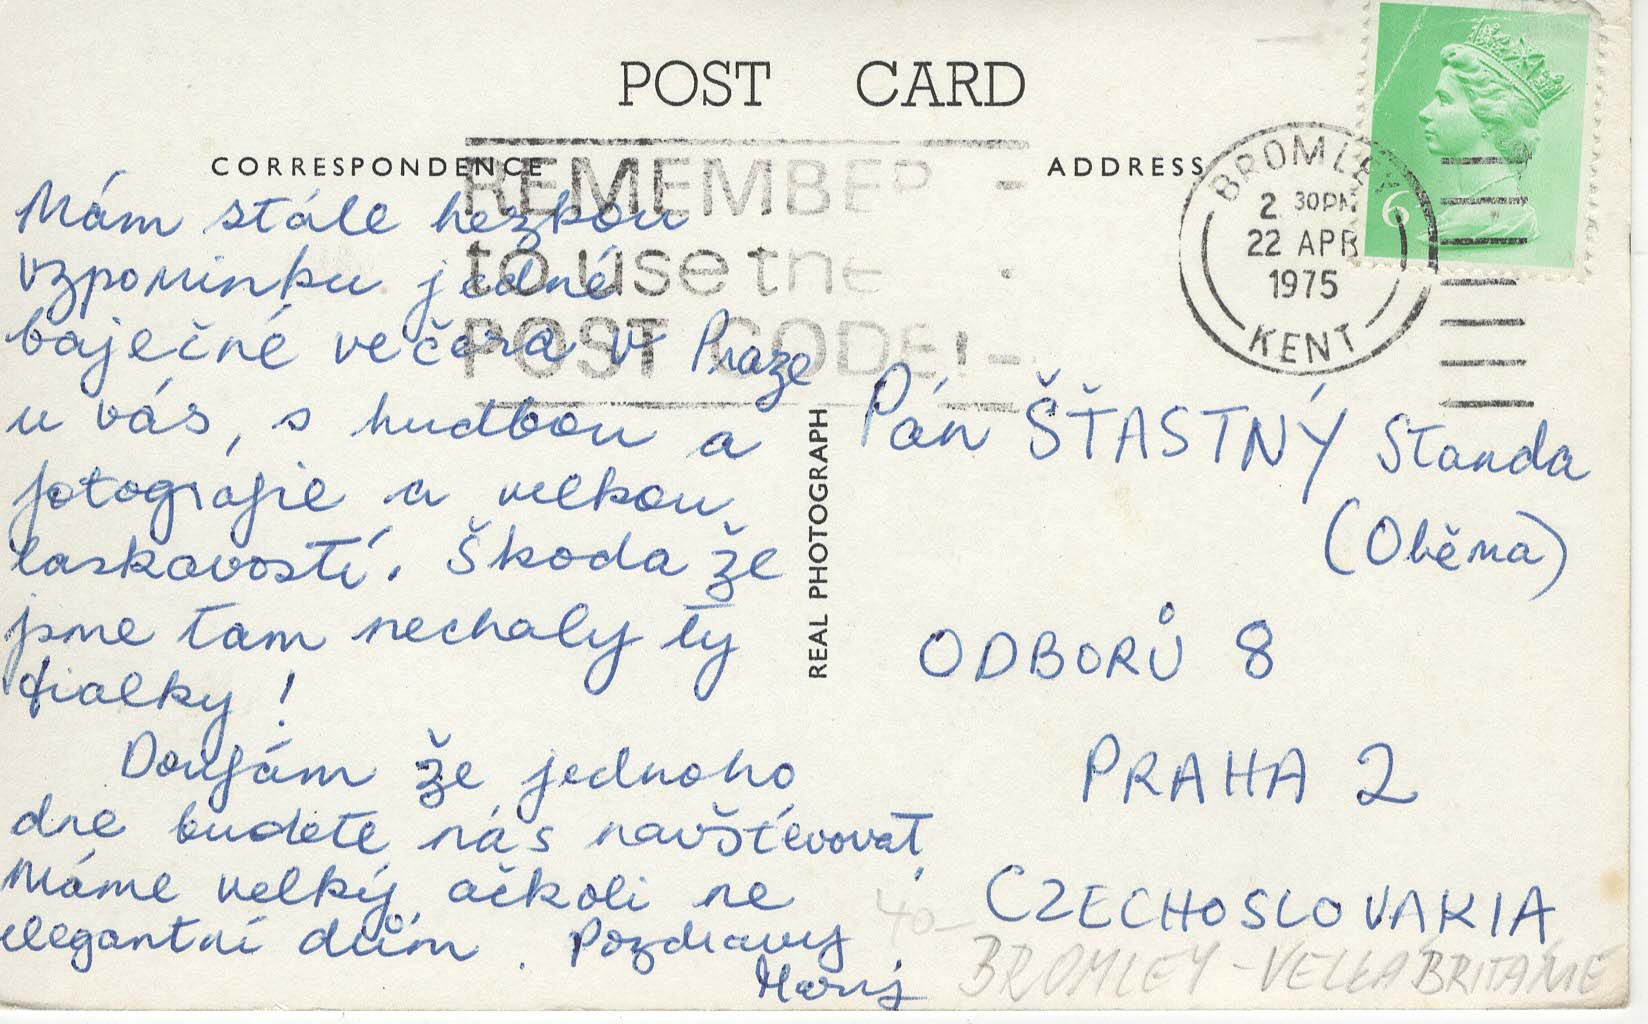 POST CARD
CORRESPONDENCE
ADDRESS
REMEMBER
to use the
POST CODE!
BROMLEY
2 30PM
22 APR
1975
KENT
6
Mám stále hezkou
vzpomínku jedné
baječné večera v Praze
u vás, s hudbou a
fotografie a velkou
laskavostí. Škoda že
jsme tam nechaly ty
fialky!
Doufám že jednoho
dne budete nás navštěvovat,
Máme velký ačkoli ne
elegantní dům. Pozdravy
REAL PHOTOGRAPH
Pán ŠŤASTNÝ Standa
ODBORŮ 8
PRAHA 2
CZECHOSLOVAKIA
40-
BROMLEY - VELKÁ BRITÁNIE